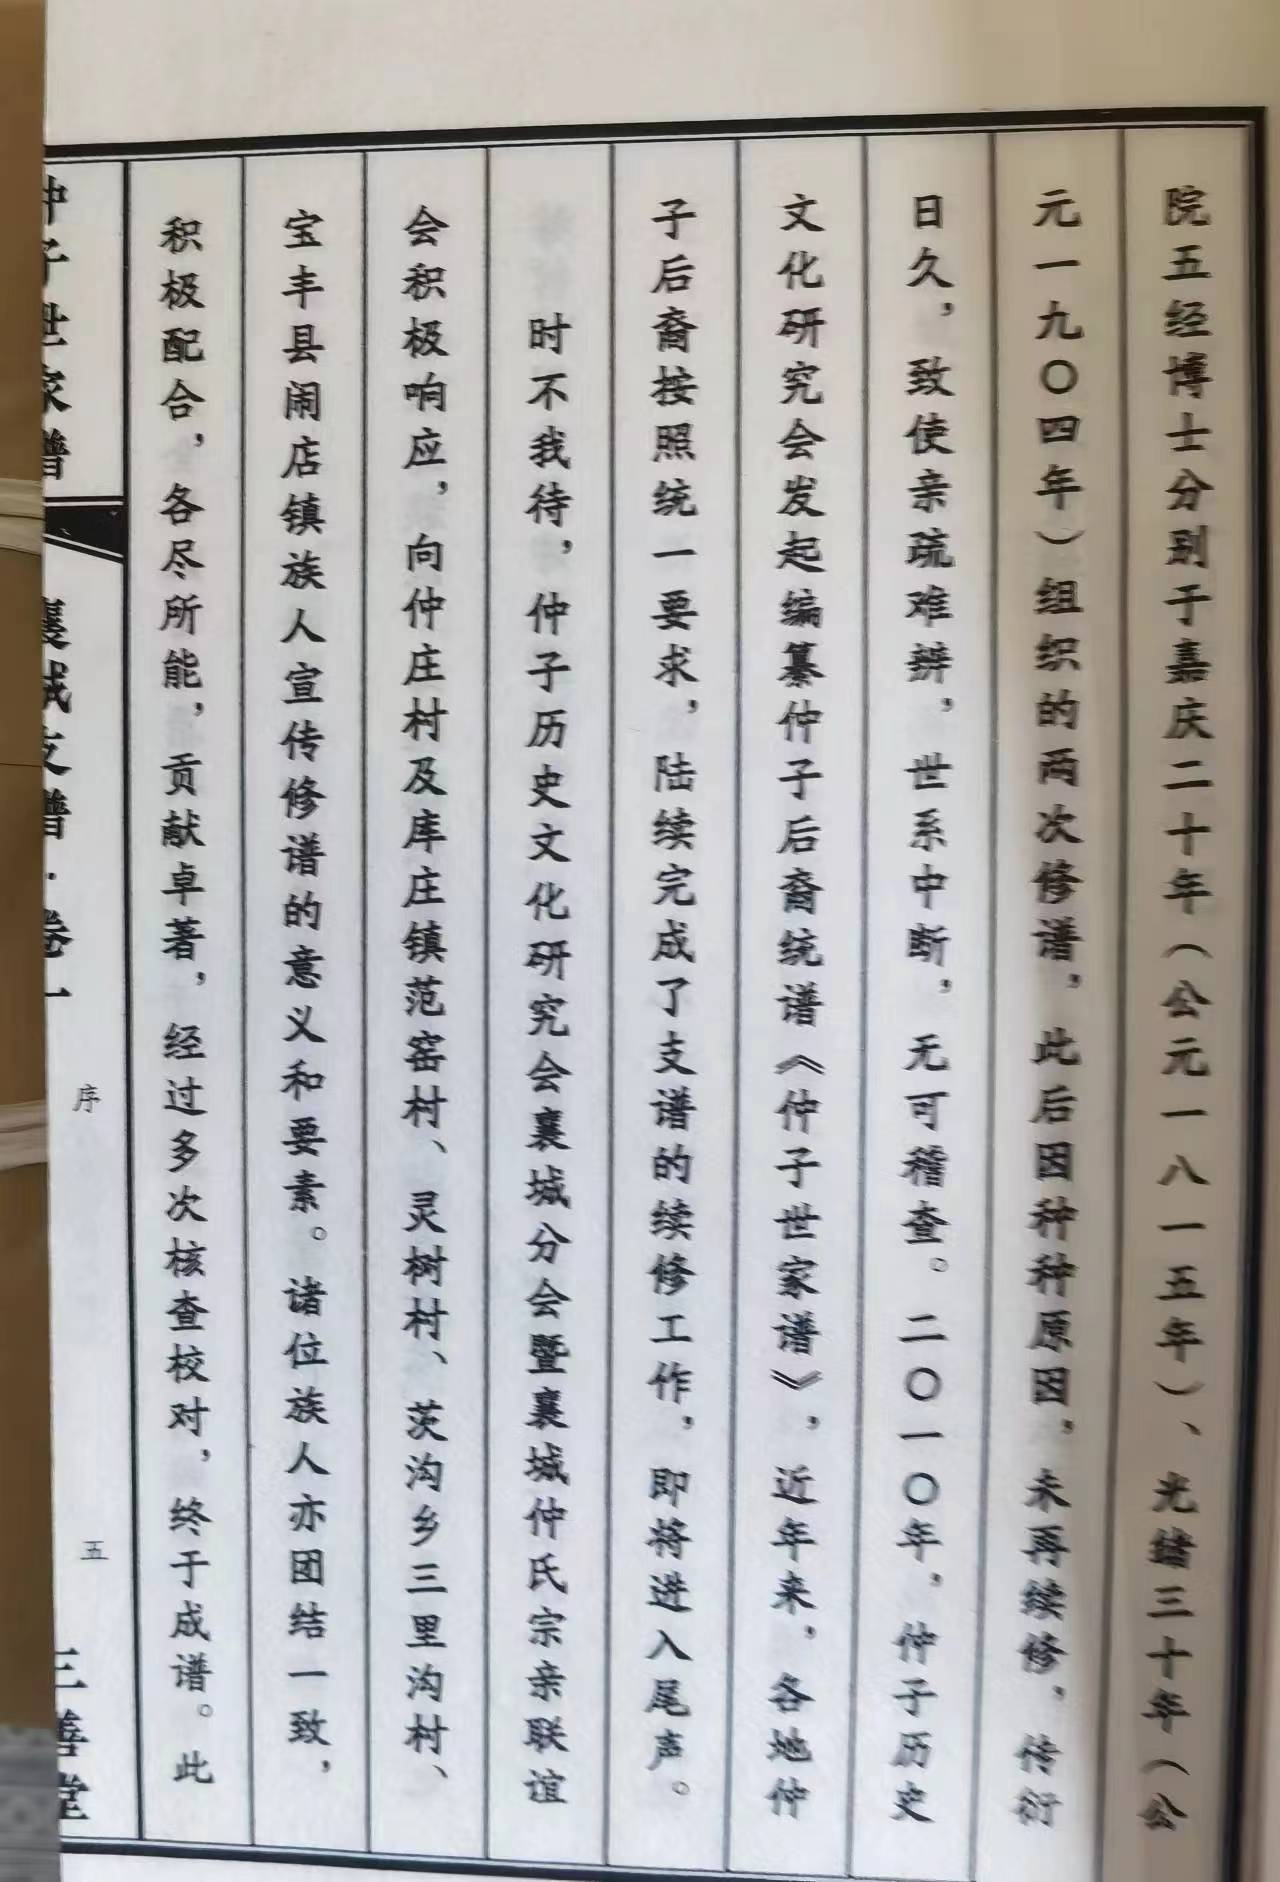 院五经博士分别于嘉庆二十年（公元一八一五年）、光绪三十年（公
元一九〇四年）组织的两次修谱，此后因种种原因，未再续修，传衍
日久，致使亲疏难辨，世系中断，无可稽查。二〇一〇年，仲子历史
文化研究会发起编纂仲子后裔统谱《仲子世家谱》，近年来，各地仲
子后裔按照统一要求，陆续完成了支谱的续修工作，即将进入尾声。
时不我待，仲子历史文化研究会襄城分会暨襄城仲氏宗亲联谊
会积极响应，向仲庄村及库庄镇范窑村、灵树村、茨沟乡三里沟村、
宝丰县闹店镇族人宣传修谱的意义和要素。诸位族人亦团结一致，
积极配合，各尽所能，贡献卓著，经过多次核查校对，终于成谱。此
仲子世家谱
襄城支谱·卷一
序
五
三善堂